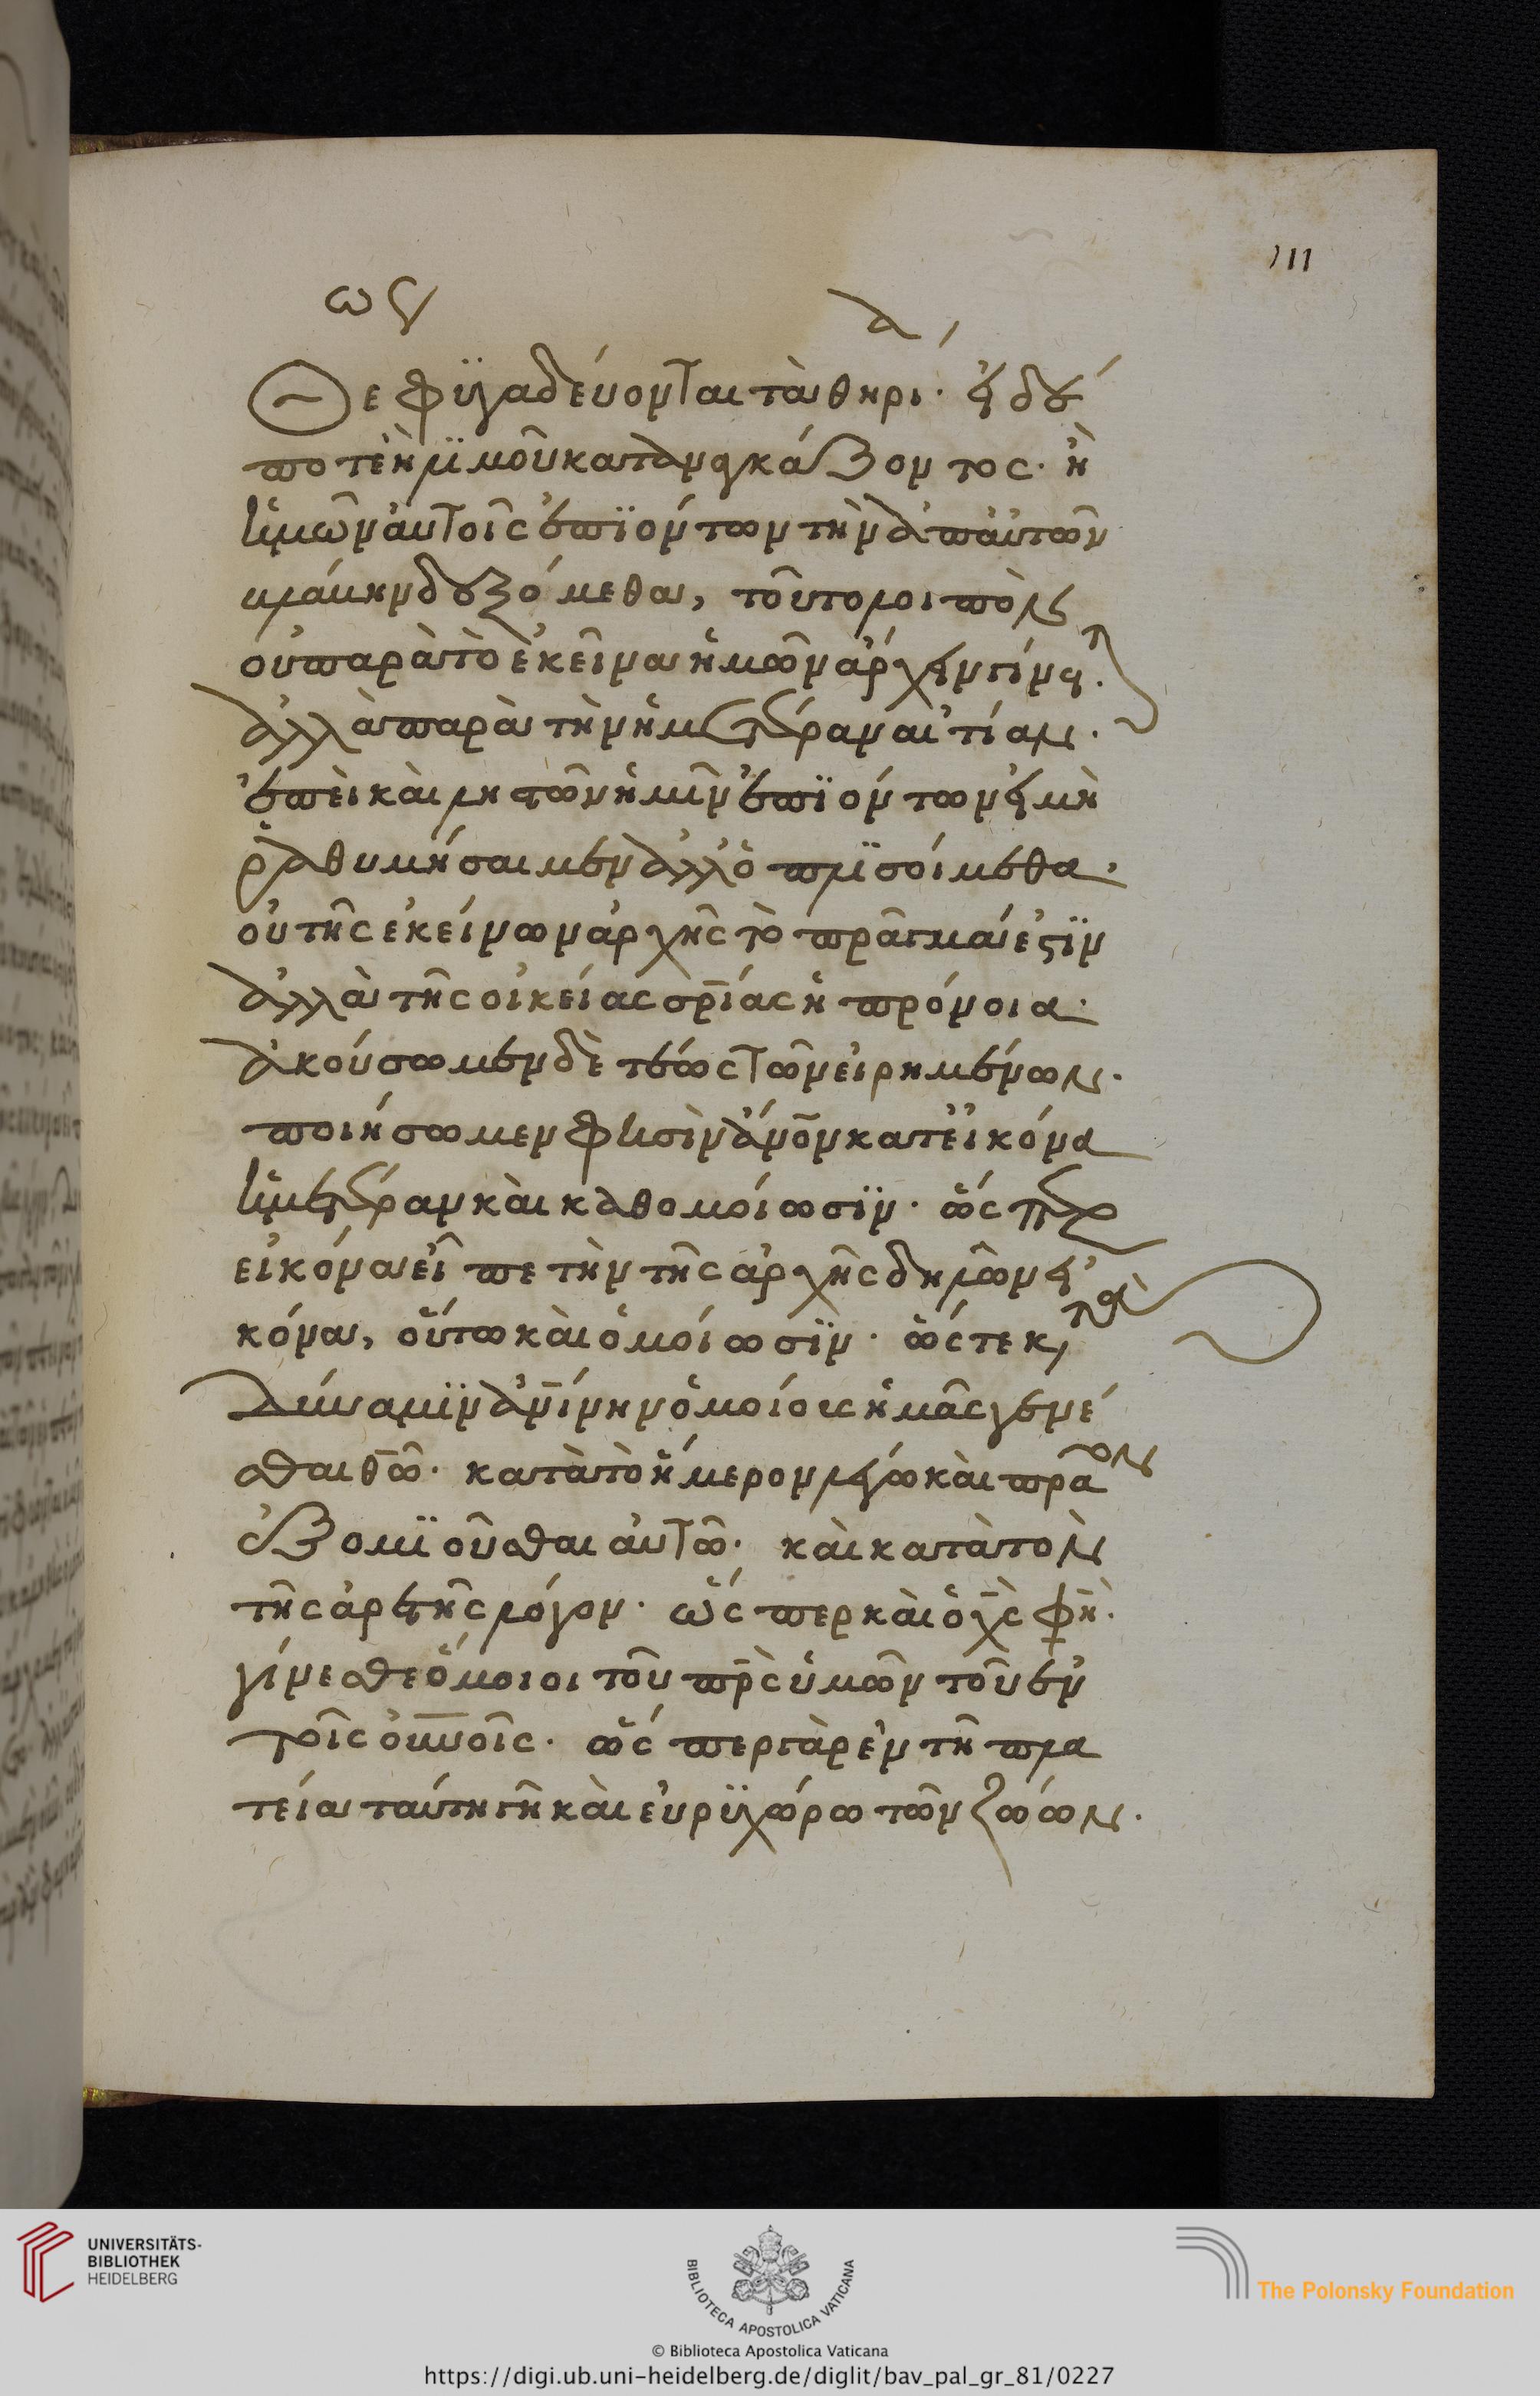 111
ὥς
τε φυγαδεύονται τὰ θηρία· εἰ δέ
ποτε ἢ λιμοῦ καταναγκάζοντος· ἢ
ἡμῶν αὐτοῖς ἐπιόντων τὴν ἀπ' αὐτῶν
βλάβην δεξόμεθα, τοῦτο λοιπὸν
οὐ παρὰ τὸ ἐκεῖνα ἡμῶν ἄρχειν γίνεται.
ἀλλὰ παρὰ τὴν ἡμετέραν αἰτίαν.
ἐπεὶ καὶ λῃστῶν ἡμῖν ἐπιόντων εἰ μὴ
ῥαθυμήσαιμεν ἀλλ' ὁπλισοίμεθα,
οὐ τῆς ἐκείνων ἀρχῆς τὸ πρᾶγμα ἐστὶν
ἀλλὰ τῆς οἰκείας σρ̅ίας ἡ πρόνοια·
ἀκούσωμεν δὲ τέως τῶν εἰρημένων.
ποιήσωμεν φησὶν ἄν̅ον κατ' εἰκόνα
ἡμετέραν καὶ καθ' ὁμοίωσιν· ὥσπερ
εἰκόνα εἶπε τὴν τῆς ἀρχῆς δηλῶν εἰ
κόνα, οὕτω καὶ ὁμοίωσιν· ὥστε κατὰ
δύναμιν ἀν̅ίνην ὁμοίους ἡμᾶς γενέ
σθαι θ̅ῶ· κατὰ τὸ ἥμερον λέγω καὶ πρᾶον
ἐξομοιοῦσθαι αὐτῶ· καὶ κατὰ τὸν
τῆς ἀρετῆς λόγον· ὥσπερ καὶ ὁ χ̅ς φη·
γίνεσθε ὅμοιοι τοῦ πρ̅ς ὑμῶν τοῦ ἐν
τοῖς οὐ̅νοῖς· ὥσπερ γὰρ ἐν τῆ πλα
τεία ταύτη γῆ καὶ εὐρυχώρω τῶν ζώων.
UNIVERSITÄTS-
BIBLIOTHEK
HEIDELBERG
BIBLIOTECA APOSTOLICA VATICANA
The Polonsky Foundation
© Biblioteca Apostolica Vaticana
https://digi.ub.uni-heidelberg.de/diglit/bav_pal_gr_81/0227